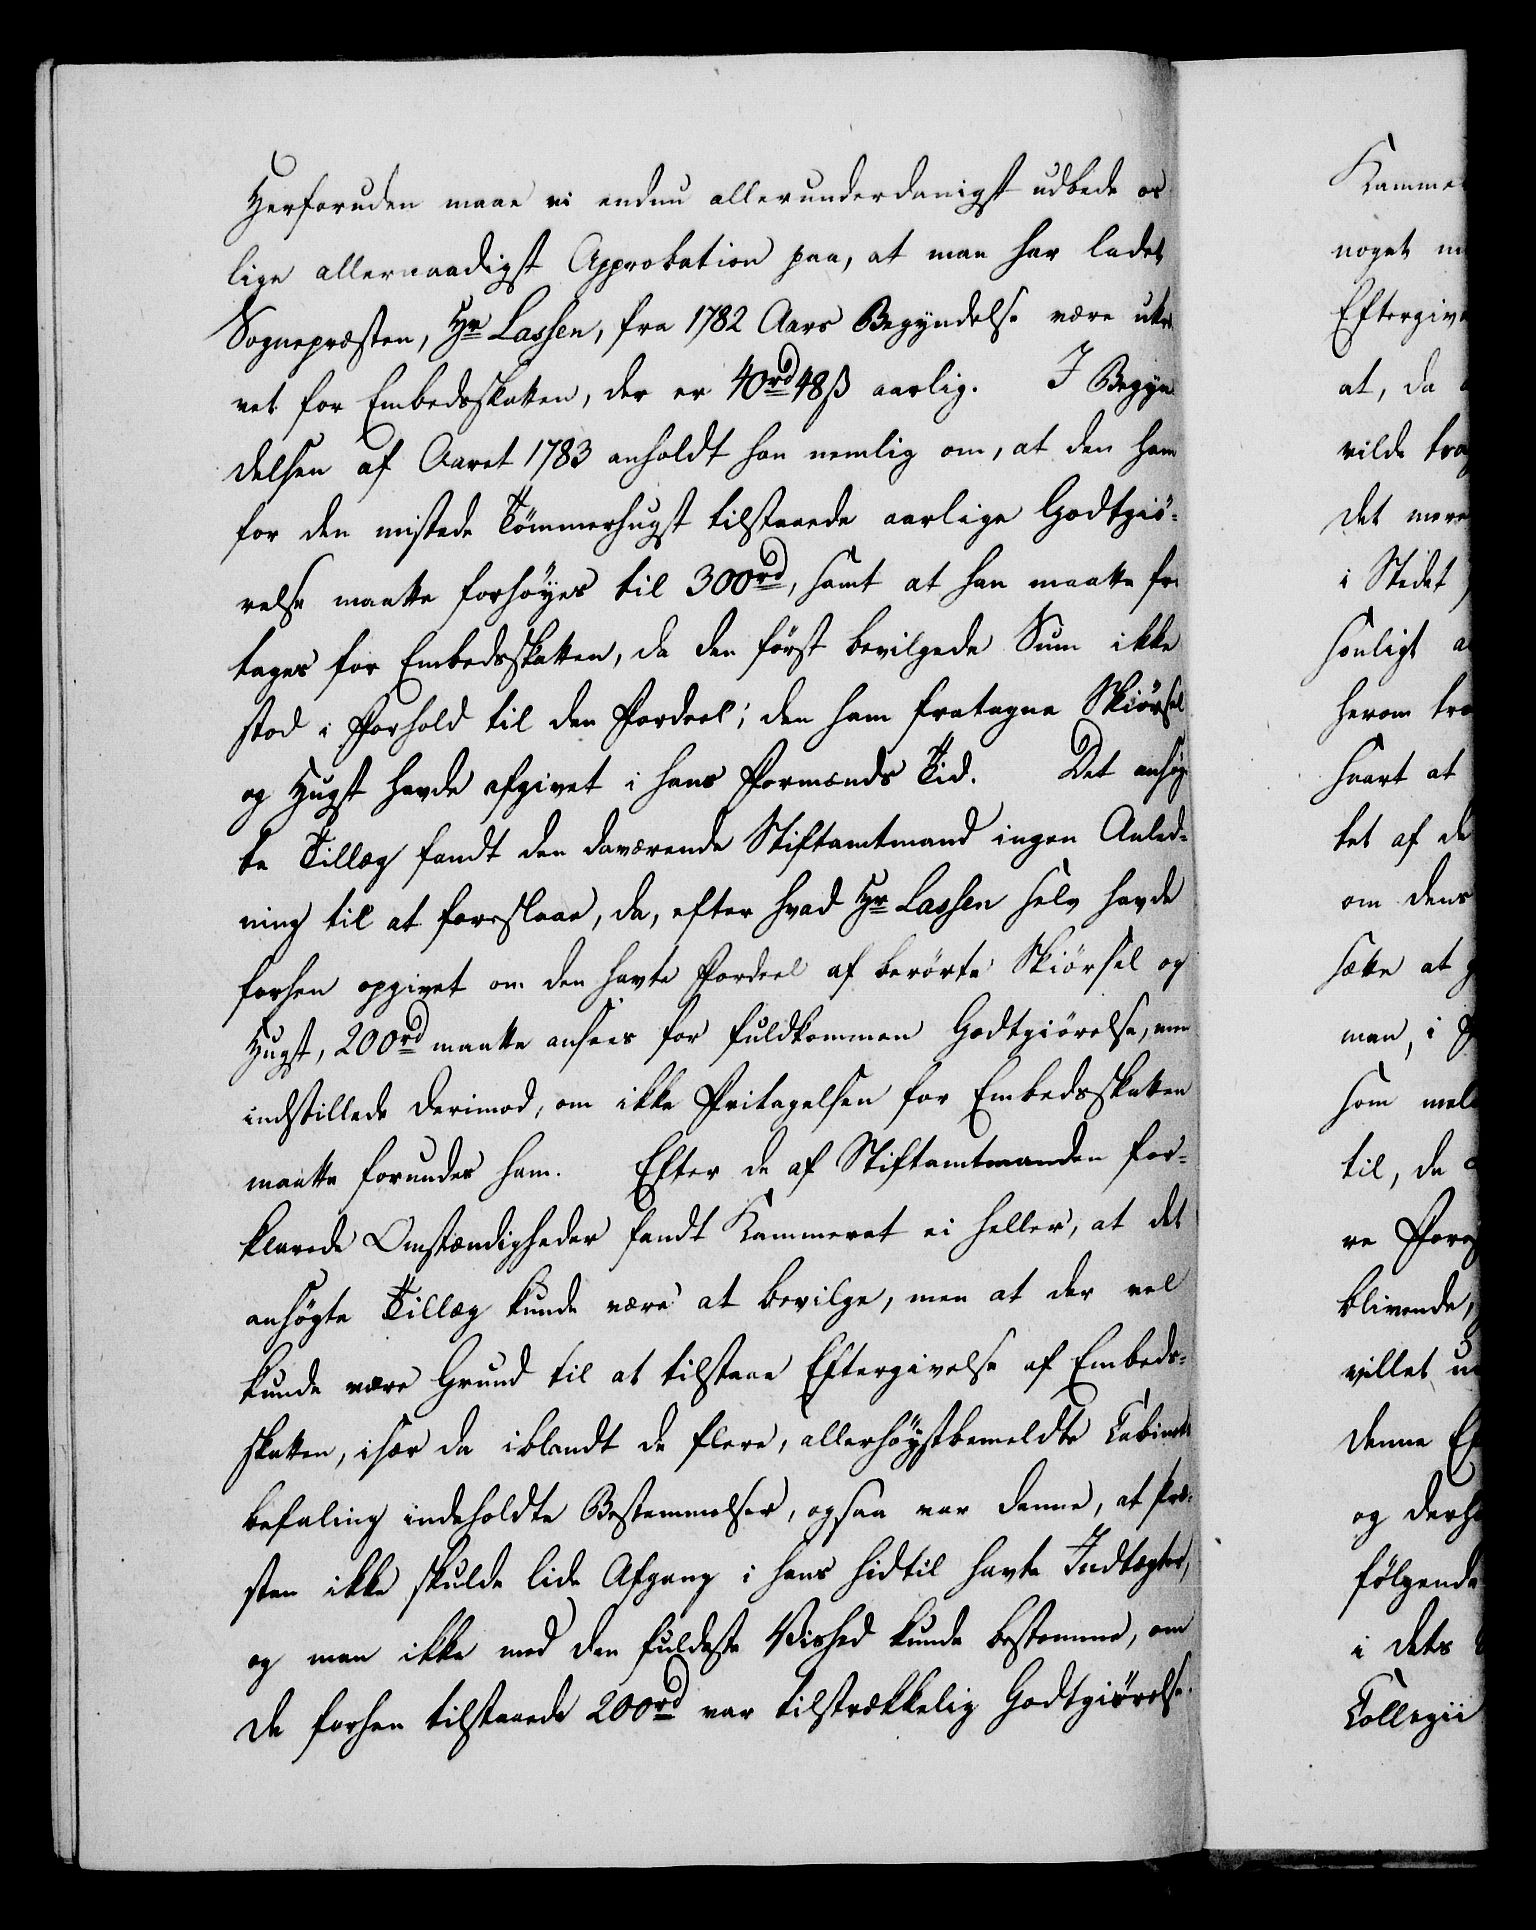 Herforuden maae vi endnu allerunderdanigst udbede os
lige allernaadigst Approbation paa, at man har ladet
Sognepræsten, Hr Lassen, fra 1782 Aars Begyndelse være ukræ
vet for Embedsskatten, der er 40rd 48ß aarlig. I Begyn
delsen af Aaret 1783 anholdt han nemlig om, at den ham
for den mistede Tömmerhugst tilstaaede aarlige Godtgiö-
relse maatte forhöyes til 300rd, samt at han maatte fri
tages for Embedsskatten, da den först bevilgede Sum ikke
stod i Forhold til den Fordeel; den ham fratagne Skiörsel
og Hugst havde afgivet i hans Formænds Tid. Det ansög
te Tillæg fandt den daværende Stiftamtmand ingen Anled-
ning til at foreslaae, da, efter hvad Hr Lassen selv havde
forhen opgivet om den havte Fordeel af berörte Skiörsel og
Hugst, 200rd maatte ansees for fuldkommen Godtgiörelse, men
indstillede derimod, om ikke Fritagelsen for Embedsskatten
maatte forundes ham. Efter de af Stiftamtmanden for-
klarede Omstændigheder fandt Kammeret ei heller, at det
ansögte Tillæg kunde være at bevilge, men at der vel
kunde være Grund til at tilstaae Eftergivelse af Embeds-
skatten, især da iblandt de flere, allerhöystbemeldte Cabinets
befaling indeholdte Bestemmelser, ogsaa var denne, at Præ-
sten ikke skulde lide Afgang i hans hidtil havte Indtægter,
og man ikke med den fuldeste Vished kunde bestemme, om
de forhen tilstaaede 200rd var tilstrækkelig Godtgiörelse.
Kammer
noget
Eftergive
at, da
vilde
det mere
i Stedet
sönligt
herom
svart at
tet af de
om dens
sætte at
man, i
som
til, da
re
blivende,
villet
denne
og
fölgende
i dets
Collegii